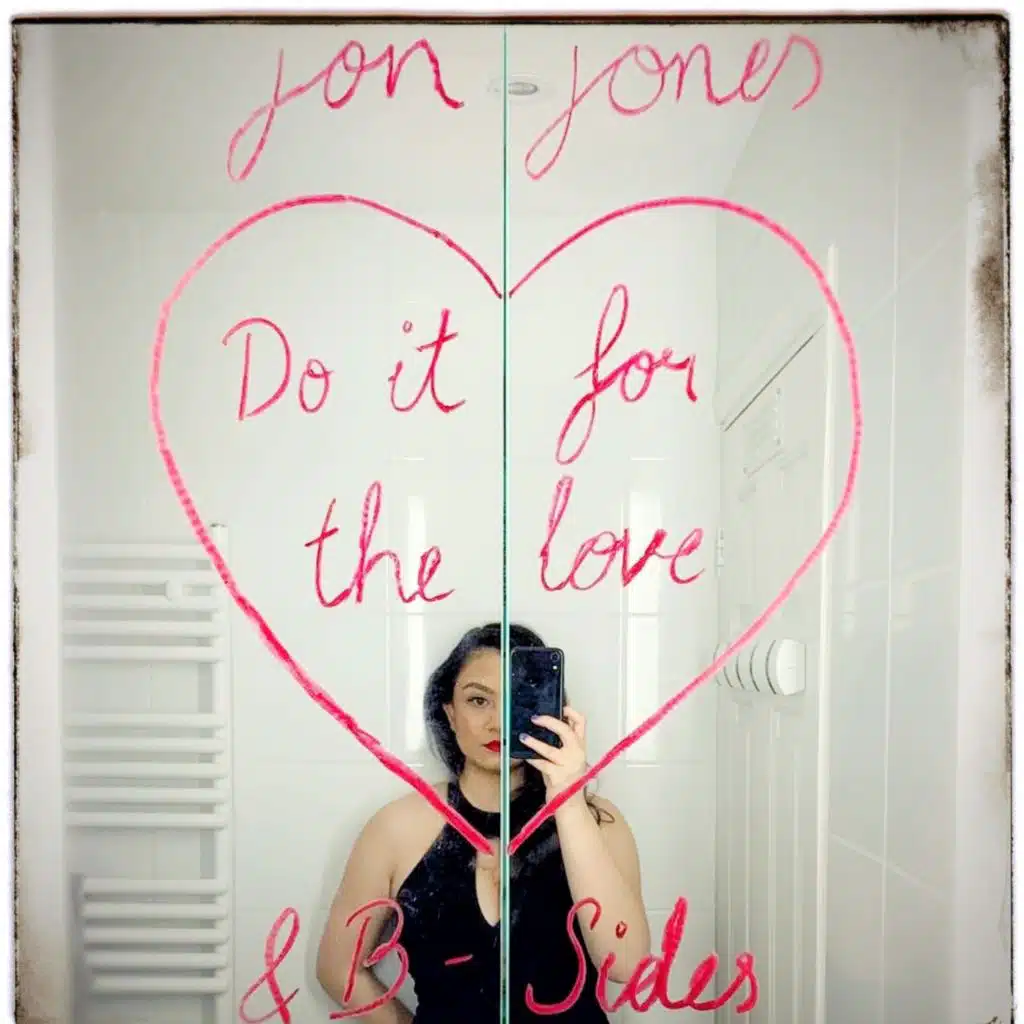 jon jones
Do it for
the love
& B-Sides